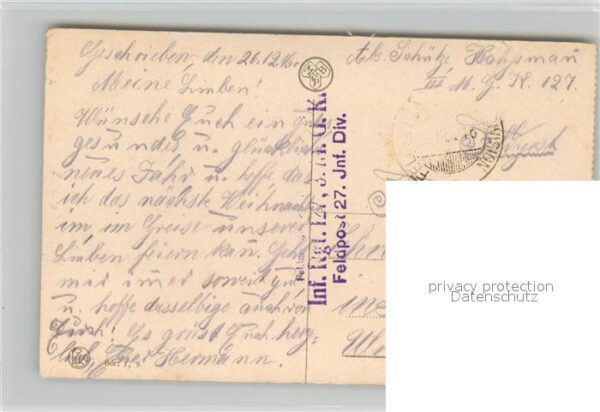 Geschrieben, den 26.12.16.
Meine Lieben!
Wünsche Euch ein
gesundes u. glückliches
neues Jahr u. hoffe das
ich das nächste Weihnacht
im im Kreise unserer
Lieben feiern kan. Geht
mir imer soweit gut
u. hoffe dasselbige auch von
Euch! Es grüst Euch herz
lich, Euer Hermann.
Abs. Schütze Hausman
III M. G. K. 127.
Feldpost
Inf. Rgt. 127, 3. M. G. K.
Feldpost 27. Inf. Div.
privacy protection
Datenschutz